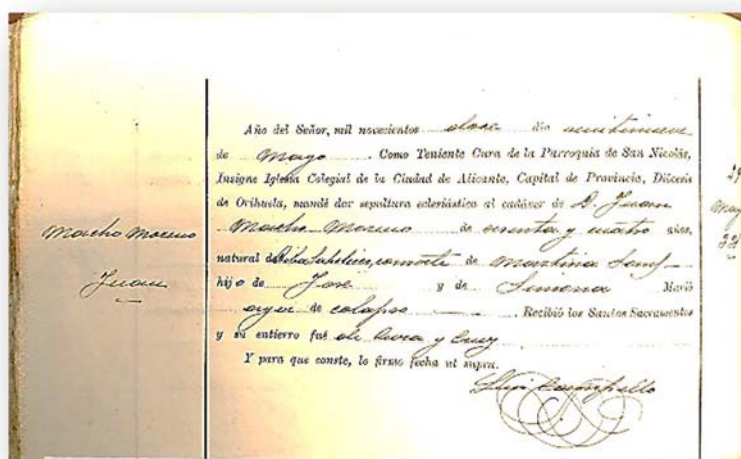 Año del Señor, mil novecientos doce día veintinueve
de Mayo. Como Teniente Cura de la Parroquia de San Nicolás,
Insigne Iglesia Colegial de la Ciudad de Alicante, Capital de Provincia, Diócesis
de Orihuela, mandé dar sepultura eclesiástica al cadáver de D. Juan
Macho Moreno de y cuatro años,
natural de consorte de Martina
hijo de José y de Simona Murió
ayer de colapso Recibió los Santos Sacramentos
y su entierro fué de Cura y Cruz
Y para que conste, lo firmo fecha ut supra.
Luis Campello
Macho Moreno
Juan
29
May